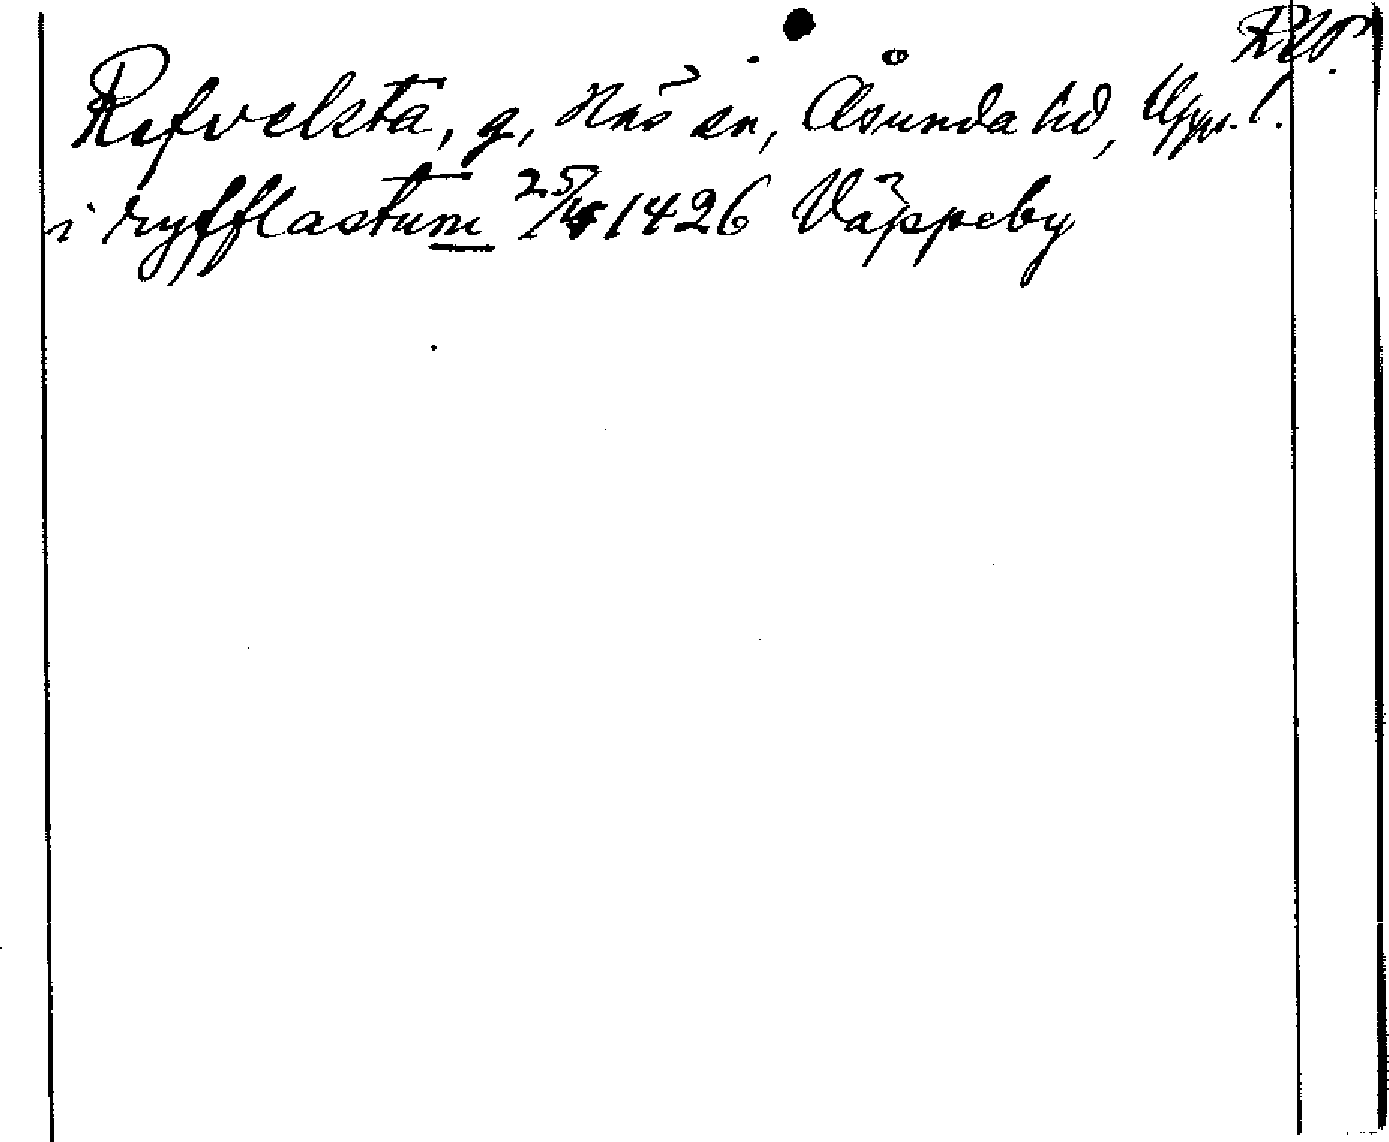 Refvelsta, g, Hnš sn, Åsunda hd, Uppl.
i ryfflastum 25/4 1426 Väppeby